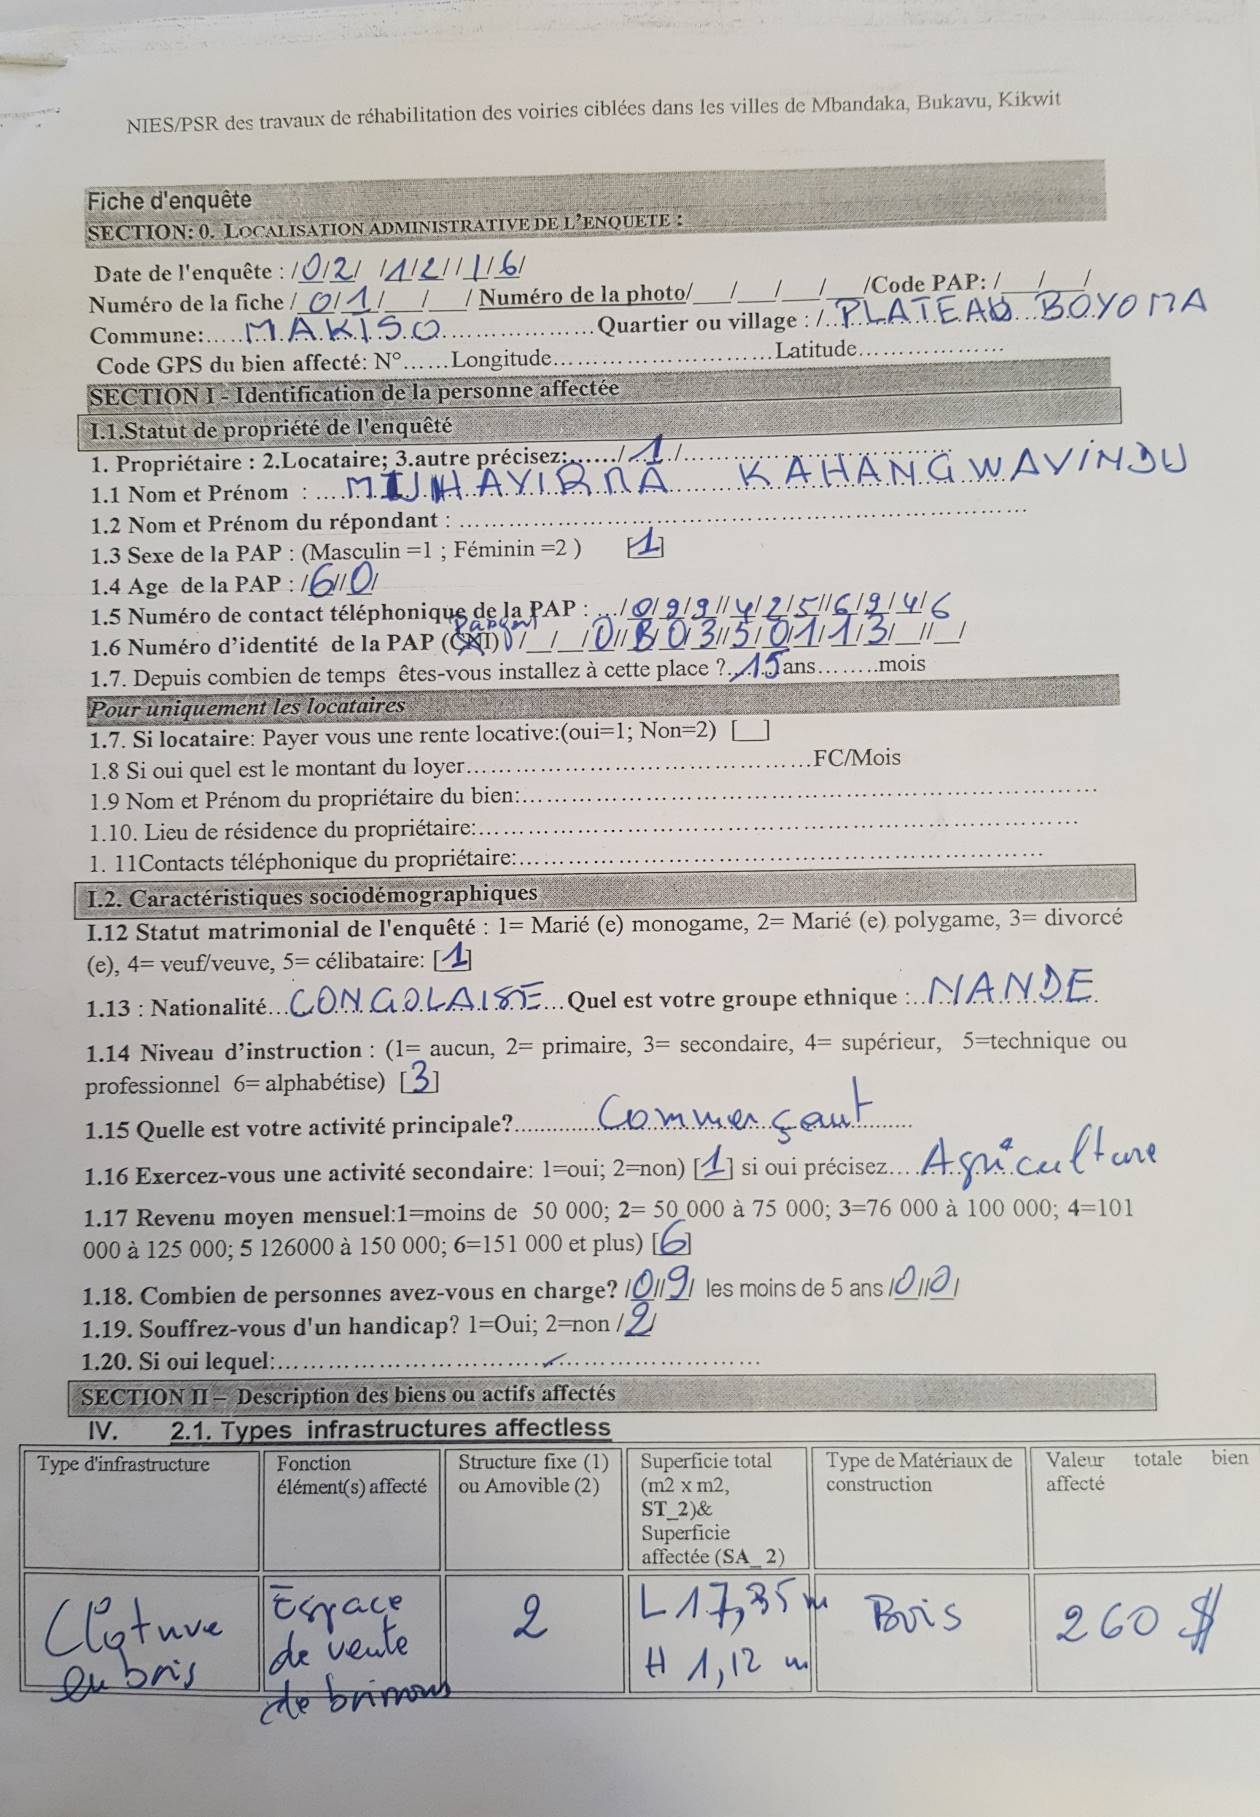 NIES/PSR des travaux de réhabilitation des voiries ciblées dans les villes de Mbandaka, Bukavu, Kikwit
Fiche d'enquête
SECTION: 0. LOCALISATION ADMINISTRATIVE DE L'ENQUETE :
Date de l'enquête : /0/2/ /1/2/ /1/6/
Numéro de la fiche /0/1/__/__/ Numéro de la photo/__/__/__/__/Code PAP: /__/__/
Commune:.....MAKISO..............Quartier ou village : /..PLATEAU BOYOMA
Code GPS du bien affecté: N°......Longitude..........................Latitude..................
SECTION I - Identification de la personne affectée
I.1.Statut de propriété de l'enquêté
1. Propriétaire : 2.Locataire; 3.autre précisez:....../1/..............................
1.1 Nom et Prénom : ...MUHAYIRMA KAHANGWAVINDU
1.2 Nom et Prénom du répondant : ............................................................
1.3 Sexe de la PAP : (Masculin =1 ; Féminin =2 ) [1]
1.4 Age de la PAP : /6//0/
1.5 Numéro de contact téléphonique de la PAP : .../0/9/9//4/2/5//6/9/4/6
1.6 Numéro d'identité de la PAP (CNI) /__/__/0//B/0/3//5/0/1/1/3/__//__/
1.7. Depuis combien de temps êtes-vous installez à cette place ?..15ans........mois
Pour uniquement les locataires
1.7. Si locataire: Payer vous une rente locative:(oui=1; Non=2) [__]
1.8 Si oui quel est le montant du loyer........................................FC/Mois
1.9 Nom et Prénom du propriétaire du bien:............................................................
1.10. Lieu de résidence du propriétaire:............................................................
1. 11Contacts téléphonique du propriétaire:......................................................
I.2. Caractéristiques sociodémographiques
I.12 Statut matrimonial de l'enquêté : 1= Marié (e) monogame, 2= Marié (e) polygame, 3= divorcé
(e), 4= veuf/veuve, 5= célibataire: [1]
1.13 : Nationalité...CONGOLAISE...Quel est votre groupe ethnique :..NANDE.
1.14 Niveau d'instruction : (1= aucun, 2= primaire, 3= secondaire, 4= supérieur, 5=technique ou
professionnel 6= alphabétise) [3]
1.15 Quelle est votre activité principale?..........Commerçant......
1.16 Exercez-vous une activité secondaire: 1=oui; 2=non) [1] si oui précisez....Agriculture
1.17 Revenu moyen mensuel:1=moins de 50 000; 2= 50 000 à 75 000; 3=76 000 à 100 000; 4=101
000 à 125 000; 5 126000 à 150 000; 6=151 000 et plus) [6]
1.18. Combien de personnes avez-vous en charge? /0//9/ les moins de 5 ans /0//0/
1.19. Souffrez-vous d'un handicap? 1=Oui; 2=non /2/
1.20. Si oui lequel:............................................................
SECTION II – Description des biens ou actifs affectés
IV. 2.1. Types infrastructures affectless
Type d'infrastructure Fonction élément(s) affecté Structure fixe (1) ou Amovible (2) Superficie total (m2 x m2, ST_2)& Superficie affectée (SA_ 2) Type de Matériaux de construction Valeur totale bien affecté
Cloture en bris Espace de vente de brimous 2 L 17,35 m H 1,12 m Bois 260 $